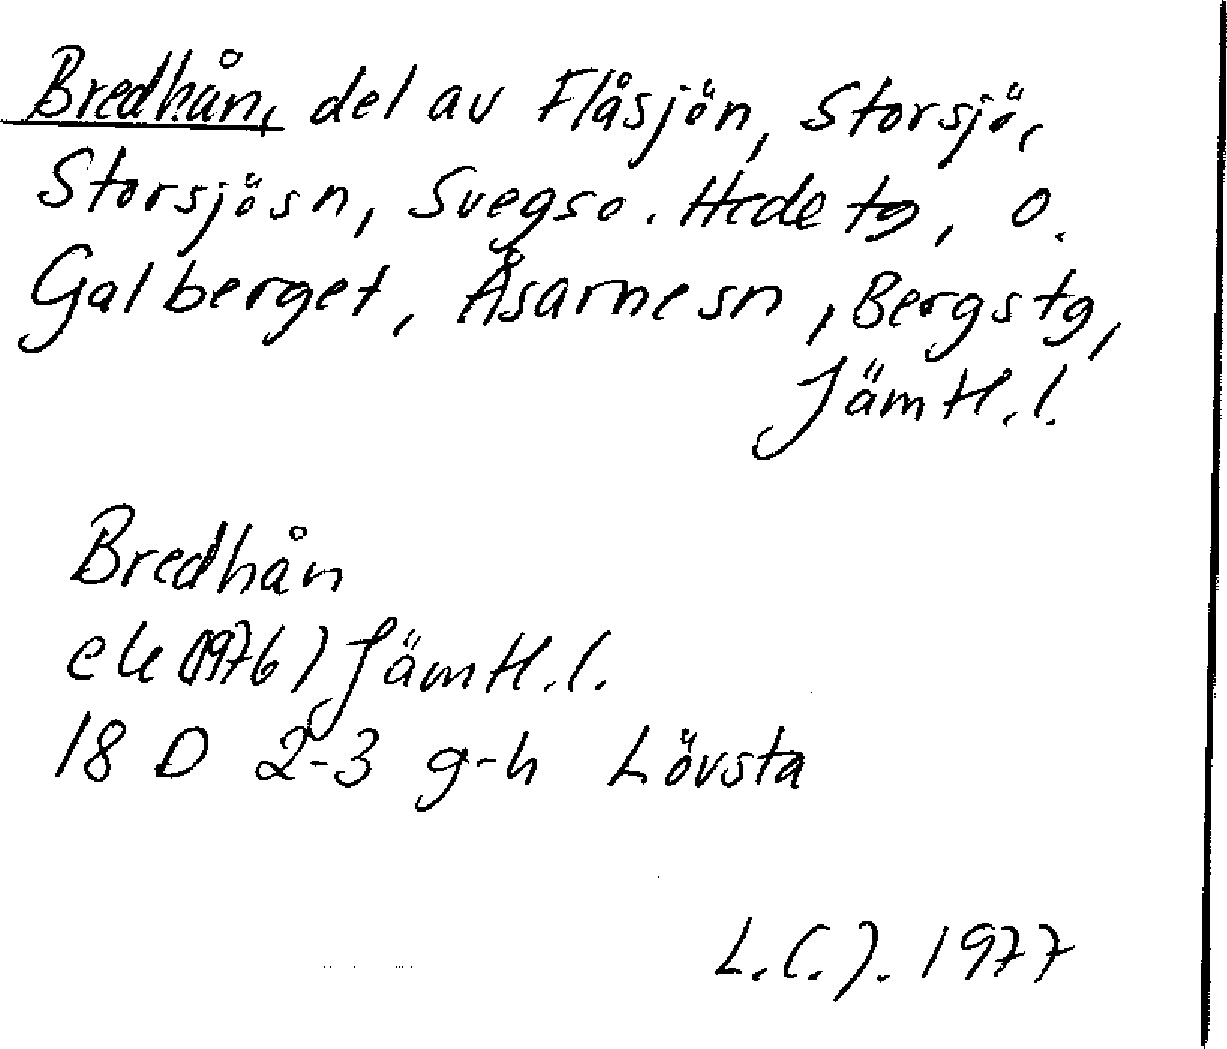 Bredhån, del av Flåsjön, Storsjö,
Storsjösn, Svegs o. Hede tg, o.
Galberget, Åsarnesn, Bergstg,
Jämtl.l.
Bredhån
ek (1976) Jämtl.l.
18 D 2-3 g-h Lövsta
L.C.J. 1977